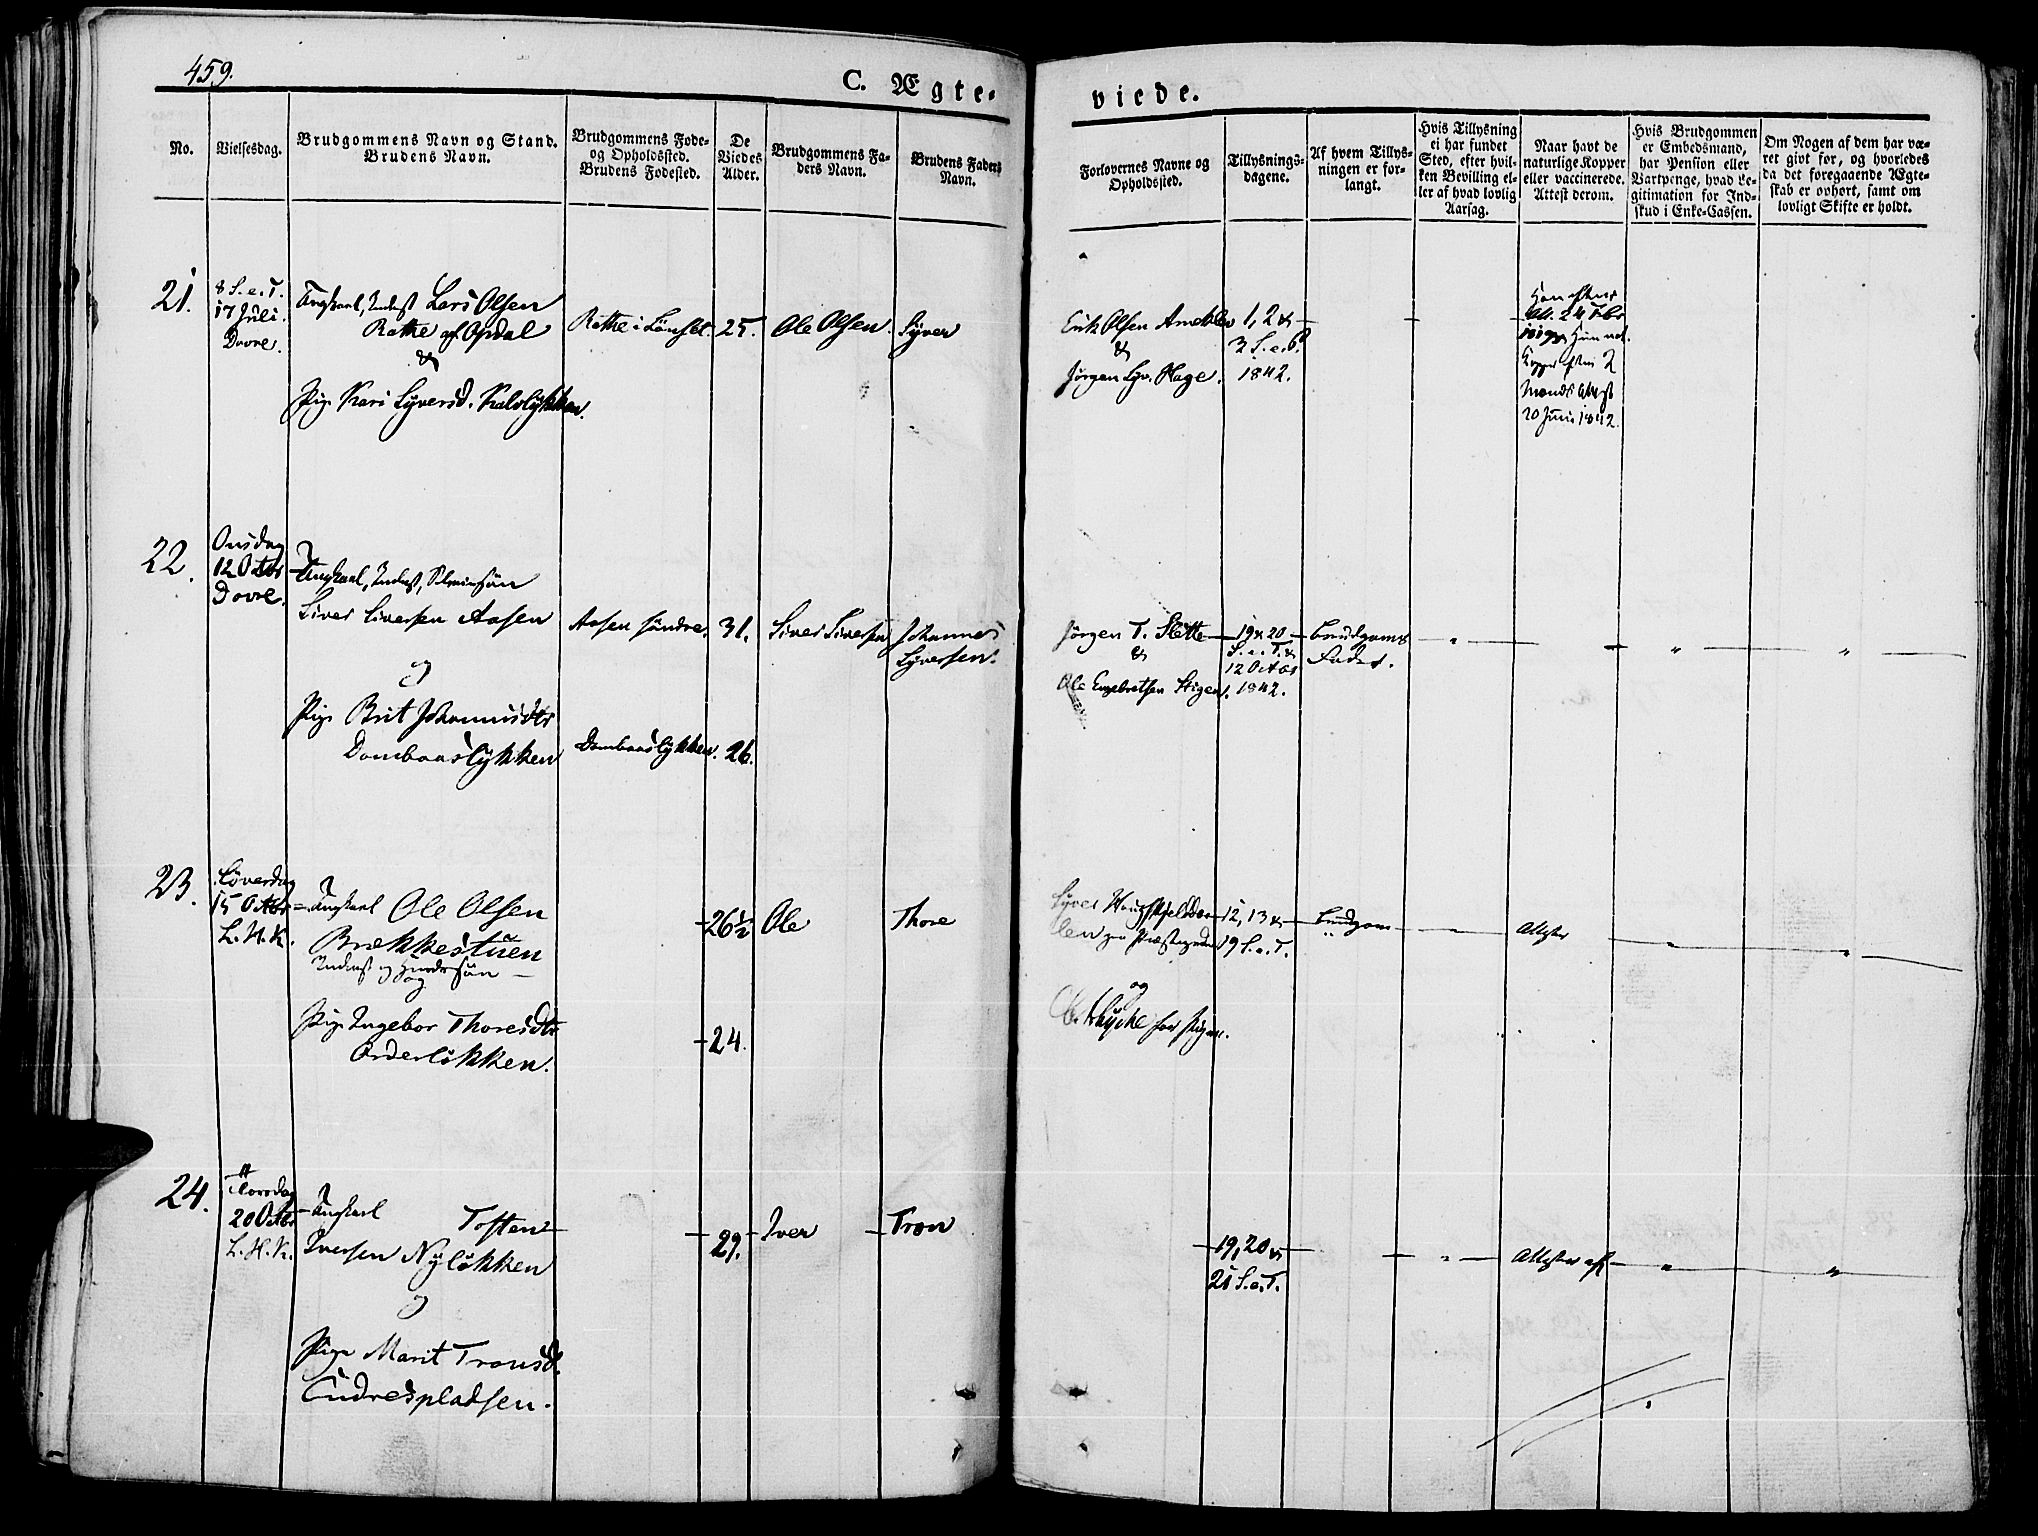 459.
C. Ægte-
viede.
No.
Vielsesdag.
Brudgommens Navn og Stand.
Brudens Navn.
Brudgommens Føde-
og Opholdssted.
Brudens Fødested.
De
Viedes
Alder.
Brudgommens Fa-
ders Navn.
Brudens Faders
Navn.
Forlovernes Navne og
Opholdssted.
Tillysnings-
dagene.
Af hvem Tillys-
ningen er for-
langt.
Hvis Tillysning
ei har fundet
Sted, efter hvil-
ken Bevilling el-
ler af hvad lovlig
Aarsag.
Naar havt de
naturlige Kopper
eller vaccinerede.
Attest derom.
Hvis Brudgommen
er Embedsmand,
har Pension eller
Vartpenge, hvad Le-
gitimation for Ind-
skud i Enke-Cassen.
Om Nogen af dem har væ-
ret givt før, og hvorledes
da det foregaaende Ægte-
skab er ophørt, samt om
lovligt Skifte er holdt.
21.
8 S. e. T.
17 Juli.
Dovre.
Ungkarl, Inderst Lars Olsen
Rathe af Opdal
&
Pige Kari Syversd. Kalvlykken.
Rathe i Lønset
25.
Ole Olsen
Syver
Erik Olsen
&
Jørgen Syv. Hage.
1, 2 &
3 S. e. T.
1842.
20 Juni 1842.
22.
Onsdag
12 Octbr
Dovre.
Ungkarl, Inderst,
Siver Siversen Aasen
og
Pige Brit Johannesdtr
Dombaaslykken
Aasen søndre.
Dombaaslykken.
31.
26.
Siver Siversen
Johannes
Syversen.
Jørgen T. Slette
&
Ole Engebretsen Stigen.
19 & 20
S. e. T. &
12 Octbr
1842.
Brudgoms
Fader.
23.
Løverdag
15 Octbr
L. H. K.
Ungkarl Ole Olsen
Brækkestuen
Inderst og
og
Pige Ingebor Thoresdtr
Orderløkken.
26½
24.
Ole
Thore
Syver
og
for Pigen.
12, 13 &
19 S. e. T.
Brudgom
Attester
24.
Torsdag
20 Octbr
L. H. K.
Ungkarl Tosten
Iversen Nyløkken
og
Pige Marit Tronsd.
Endrespladsen.
29.
Iver
Tron
19, 20 &
21 S. e. T.
Attester